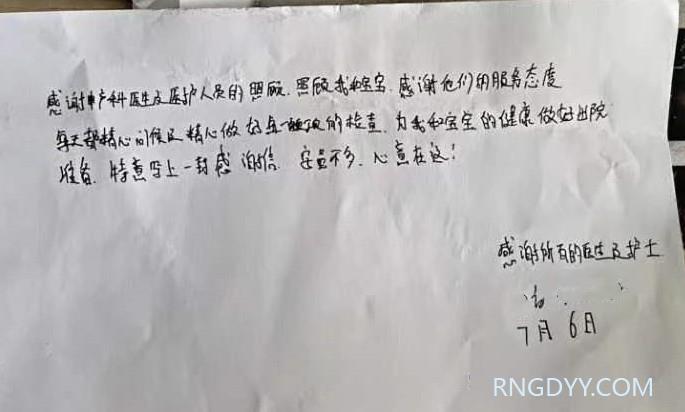 感谢产科医生及医护人员的照顾.照顾我和宝宝.感谢他们的服务态度
每天都精心问候及精心做好每一项的检查.为我和宝宝的健康做好出院
准备.特意写上一封感谢信.字虽不多、心意在这!
感谢所有的医生及护士
7月6日
RNGDYY.COM